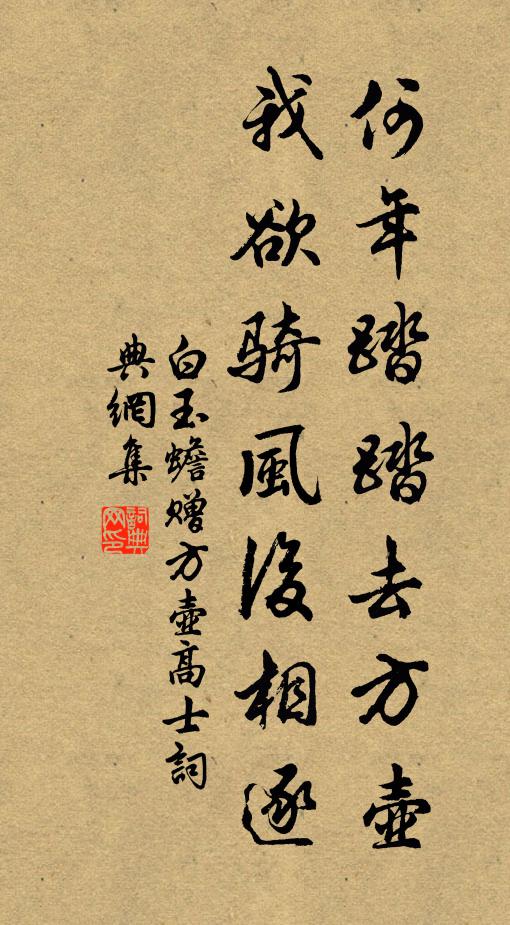 何年踏踏去方壺
我欲騎風後相逐
白玉蟾赠方壺高士詞
典網集
詞典
网印